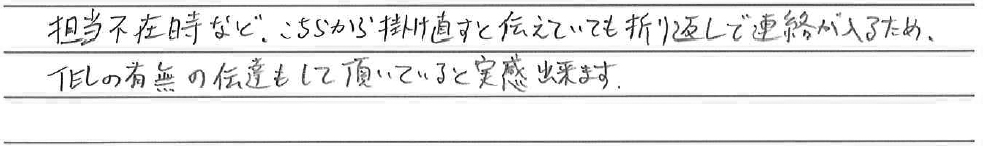 担当不在時など、こちらから掛け直すと伝えていても折り返しで連絡が入るため、
TELの有無の伝達もして頂いていると実感出来ます。